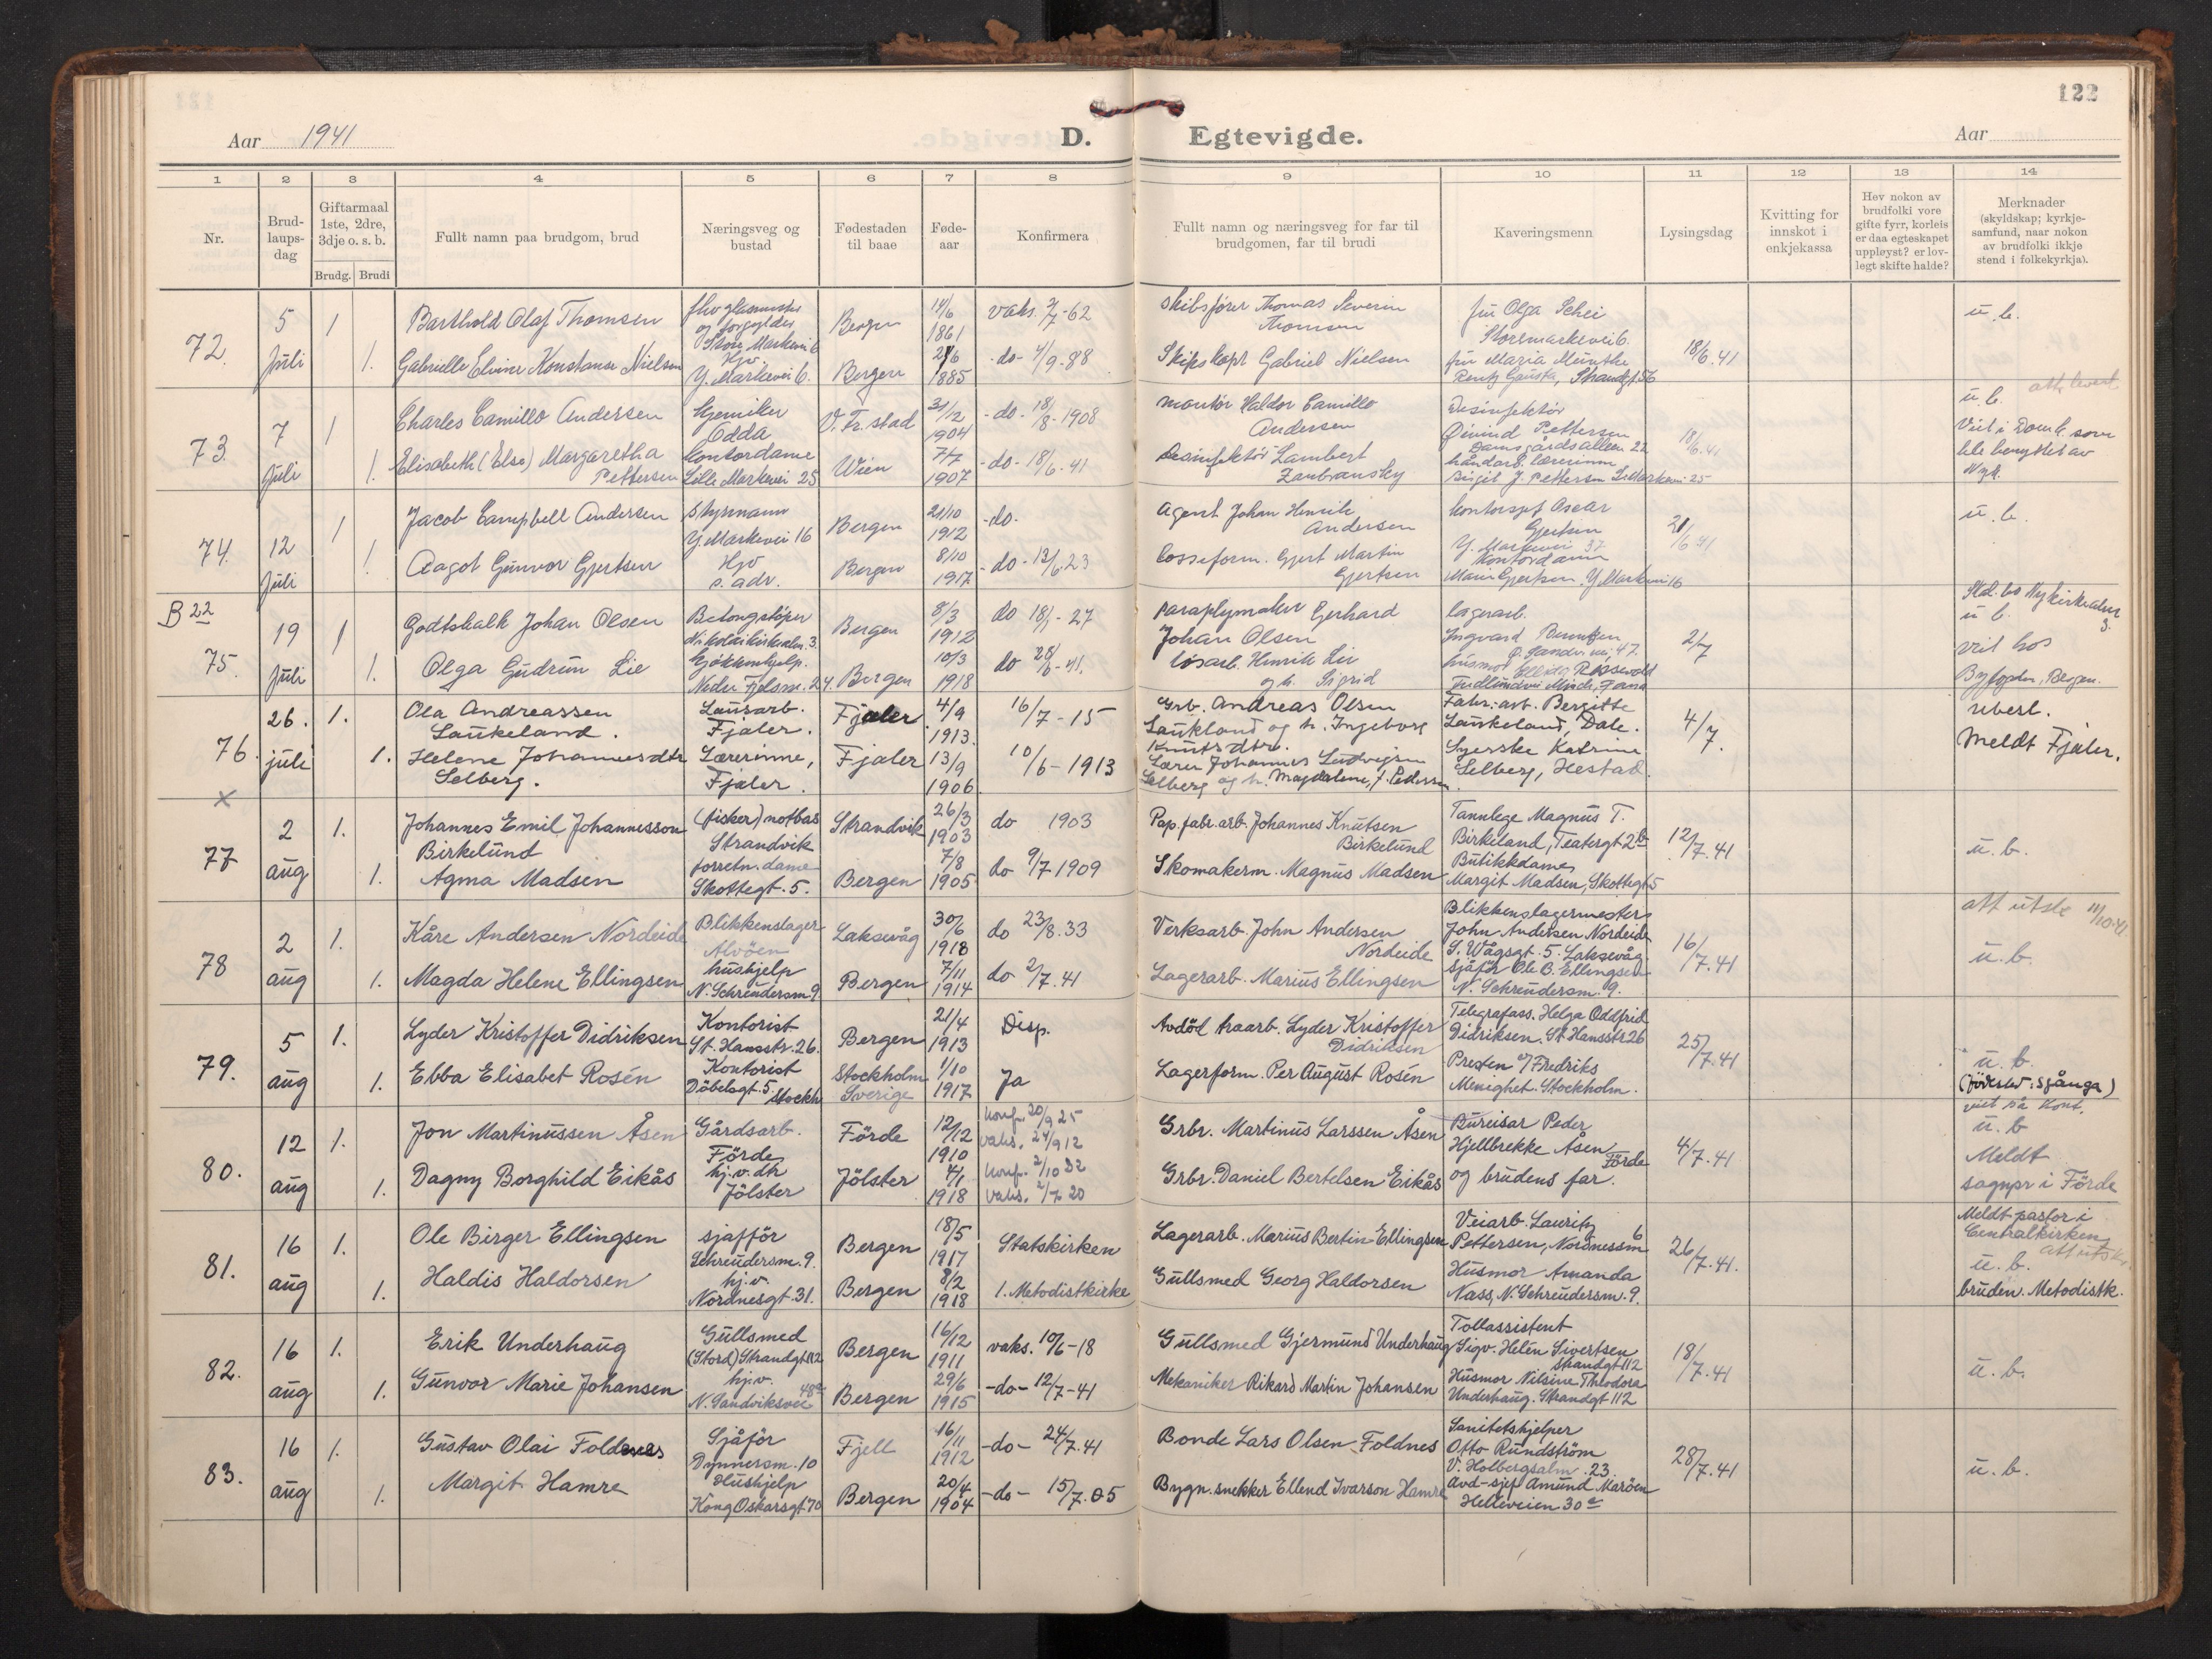 122
Aar 1941
D. Egtevigde.
Aar
1 2 3 4 5 6 7 8 9 10 11 12 13 14
Nr.
Brud-
laups-
dag
Giftarmaal
1ste, 2dre,
3dje o. s. b.
Brudg. Brudi
Fullt namn paa brudgom, brud
Næringsveg og
bustad
Fødestaden
til baae
Føde-
aar
Konfirmera
Fullt namn og næringsveg for far til
brudgomen, far til brudi
Kaveringsmenn
Lysingsdag
Kvitting for
innskot i
enkjekassa
Hev nokon av
brudfolki vore
gifte fyrr, korleis
er daa egteskapet
uppløyst? er lov-
legt skifte halde?
Merknader
(skyldskap; kyrkje-
samfund, naar nokon
av brudfolki ikkje
stend i folkekyrkja).
72.
5
Juli
1
1.
Barthold Olaf Thomsen
Gabrielle Elvine Konstanse Nielsen
og forgylder
Store Markevei 6
Hjv.
Y. Markevei 6.
Bergen
Bergen
14/6
1861
1885
vaks. -62
-do- 4/9.88
Skibsfører Thomas Severin
Thomsen
Skipskapt Gabriel Nielsen
fru Olga Schei
Storemarkevei 6.
fru Maria Munthe
Strandgt. 56
18/6.41
u.b.
73.
7
Juli
1
1.
Charles Camillo Andersen
Elisabeth (Else) Margaretha
Pettersen
Kjemiker
Odda
Kontordame
Lille Markevei 25
V. Fr. stad
Wien
31/2
1904
7/7
1907
-do- 18/8-1908
-do- 18/6.41
Montør Haldor Camillo
Andersen
Desinfektør Lambert
Zanbransky
Desinfektør
Øivind Pettersen
Damsgårdsalleen 22
håndarb. lærerinne
Birgit J. Pettersen L. Markevei 25
18/6.41
att. levert
u.b.
Viet i Domk. som
ble benyttet av
Nyk.
74.
12
Juli
1
1
Jacob Campbell Andersen
Aagot Gunvor Gjertsen
Styrmann
Y. Markevei 16
Hjv
s. adr.
Bergen
Bergen
21/10
1912
8/10
1917
-do-
-do- 13/6.23
Agent Johan Henrik
Andersen
Losseform. Gjert Martin
Gjertsen
Kontorsjef Oscar
Gjertsen
Y. Markevei 37
Kontordame
Gjertsen. Y. Markevei 16
21/6 41
u.b.
B 22
75.
19
Juli
1
1.
Godtskalk Johan Olsen
Olga Gudrun Lie
Betongstöper
Nikolaikirkealm. 3.
Kjökkenhjelp.
Nedre Fjelsm. 24.
Bergen
Bergen
8/3
1912
10/3
1918
do 18/ - 27
do 28/6-41.
Paraplymaker Gerhard
Johan Olsen
løsarb. Henrik Lie
og h. Sigrid
lagerarb.
Ingvard
Sandv. vei, 47.
husmor
2/7
Nykirkealm
3.
u b.
viet hos
Byfogden, Bergen.
76.
26.
juli
1.
1.
Ola Andreassen
Laukeland.
Helene Johannesdtr
Selberg.
Lausarb.
Fjaler.
Lærerinne,
Fjaler.
Fjaler
Fjaler
4/9
1913.
13/9
1906.
16/7-15
10/6-1913
Grb. Andreas Olsen
Laukland og h. Ingeborg
Knutsdtr.
Lærer Johannes Ludvigsen
Selberg og h. Magdalene, f. Pedersen.
Fabr. arb. Bergitte
Laukeland, Dale.
Syerske Katrine
Selberg, Hestad.
4/7.
ubesl.
Meldt Fjaler.
×
77
2
aug
1.
1.
Johannes Emil Johannesson
Birkelund
Agma Madsen
(fisker) notbas
Strandvik
forretn. dame
Skottegt. 5.
Strandvik
Bergen
26/3
1903
7/8
1905
do 1903
do 9/7 1909
Pap. fabr. arb. Johannes Knutsen
Birkelund
Skomakerm. Magnus Madsen
Tannlege Magnus T.
Birkeland, Teatergt 2b
Butikkdame
Margit Madsen, Skottegt 5
12/7.41
u.b.
78
2
aug
1.
1.
Kåre Andersen Nordeide
Magda Helene Ellingsen
Blikkenslager
Alvöen
hushjelp
N. Schreudersm 9.
Laksevåg
Bergen
30/6
1918
7/11
1914
do 23/8.33
do 2/7.41
Verksarb. John Andersen
Nordeide
Lagerarb. Marius Ellingsen
Blikkenslagermester
John Andersen Nordeide
S. Vågsgt. 5. Laksevåg
sjåför Ole B. Ellingsen
N. Schreudersm. 9.
16/7.41
att utst. 11/10.41
u.b.
79.
5
aug
1.
1.
Lyder Kristoffer Didriksen
Ebba Elisabet Rosén
Kontorist
St. Hansstr. 26.
Kontorist
Döbelsgt. 5. Stockh
Bergen
Stockholm
Sverige
21/4
1913
1/10
1917
Disp.
Ja
Avdöd traarb. Lyder Kristoffer
Didriksen
Lagerform. Per August Rosén
Telegrafass. Helga Oddfrid
Didriksen. St Hansstr 26
Presten v/ Fredriks
Menighet. Stockholm.
25/7.41
u.b.
(födested: Spånga)
80.
12
aug
1.
1.
Jon Martinussen Åsen
Dagny Borghild Eikås
Gårdsarb.
Förde
hj. v. dh
Jölster
Förde
Jölster
12/12
1910
4/1
1918
konf. 20/9 25
vaks. 24/9 12
konf. 2/10 32
vaks. 2/7 20
Grbr. Martinus Larssen Åsen
Grbr. Daniel Bertelsen Eikås
Bureisar Peder
Hjellbrekke Åsen
Förde
og brudens far.
4/7.41
viet på kont.
u.b
Meldt
sognpr i Förde
81.
16
aug
1.
1.
Ole Birger Ellingsen
Haldis Haldorsen
sjafför
Schreudersm. 9.
hj. v.
Nordnesgt. 31.
Bergen
Bergen
18/5
1917
8/2
1918
Statskirken
1. Metodistkirke
Lagerarb. Marius Bertin Ellingsen
Gullsmed Georg Haldorsen
Veiarb. Lauritz
Pettersen, Nordnessm 6
Husmor Amanda
Nass, N. Schreudersm. 9.
26/7.41.
Meldt pastor i
Centralkirken
att utsk.
u.b.
bruden. Metodistk.
82.
16
aug
1.
1.
Erik Underhaug
Gunvor Marie Johansen
Gullsmed
(Stord) Strandgt 112
hj. v.
N. Sandviksvei 48a
Bergen
Bergen
16/12
1911
29/6
1915
vaks. 10/6-18
-do- 12/7-41
Gullsmed Gjermund Underhaug
Mekaniker Rikard Martin Johansen
Tollassistent
Sigv. Helén Sivertsen
Strandgt 112
Husmor Nilsine Theodora
Underhaug. Strandgt 112
18/7.41
u.b.
83.
16
aug
1.
1.
Gustav Olai Foldnes
Margit Hamre
Sjåför
Dynnersm. 10
Hushjelp
Kong Oskarsgt 70
Fjell
Bergen
16/11
1912
20/4
1904
-do- 24/7.41
-do- 15/7.05
Bonde Lars Olsen Foldnes
Bygn. snekker Ellend Ivarson Hamre
Sanitetshjelper
Otto Rundström
V. Holbergsalm. 23.
Avd-sjef Amund Maröen
Helleveien 30a
28/7.41
u.b.